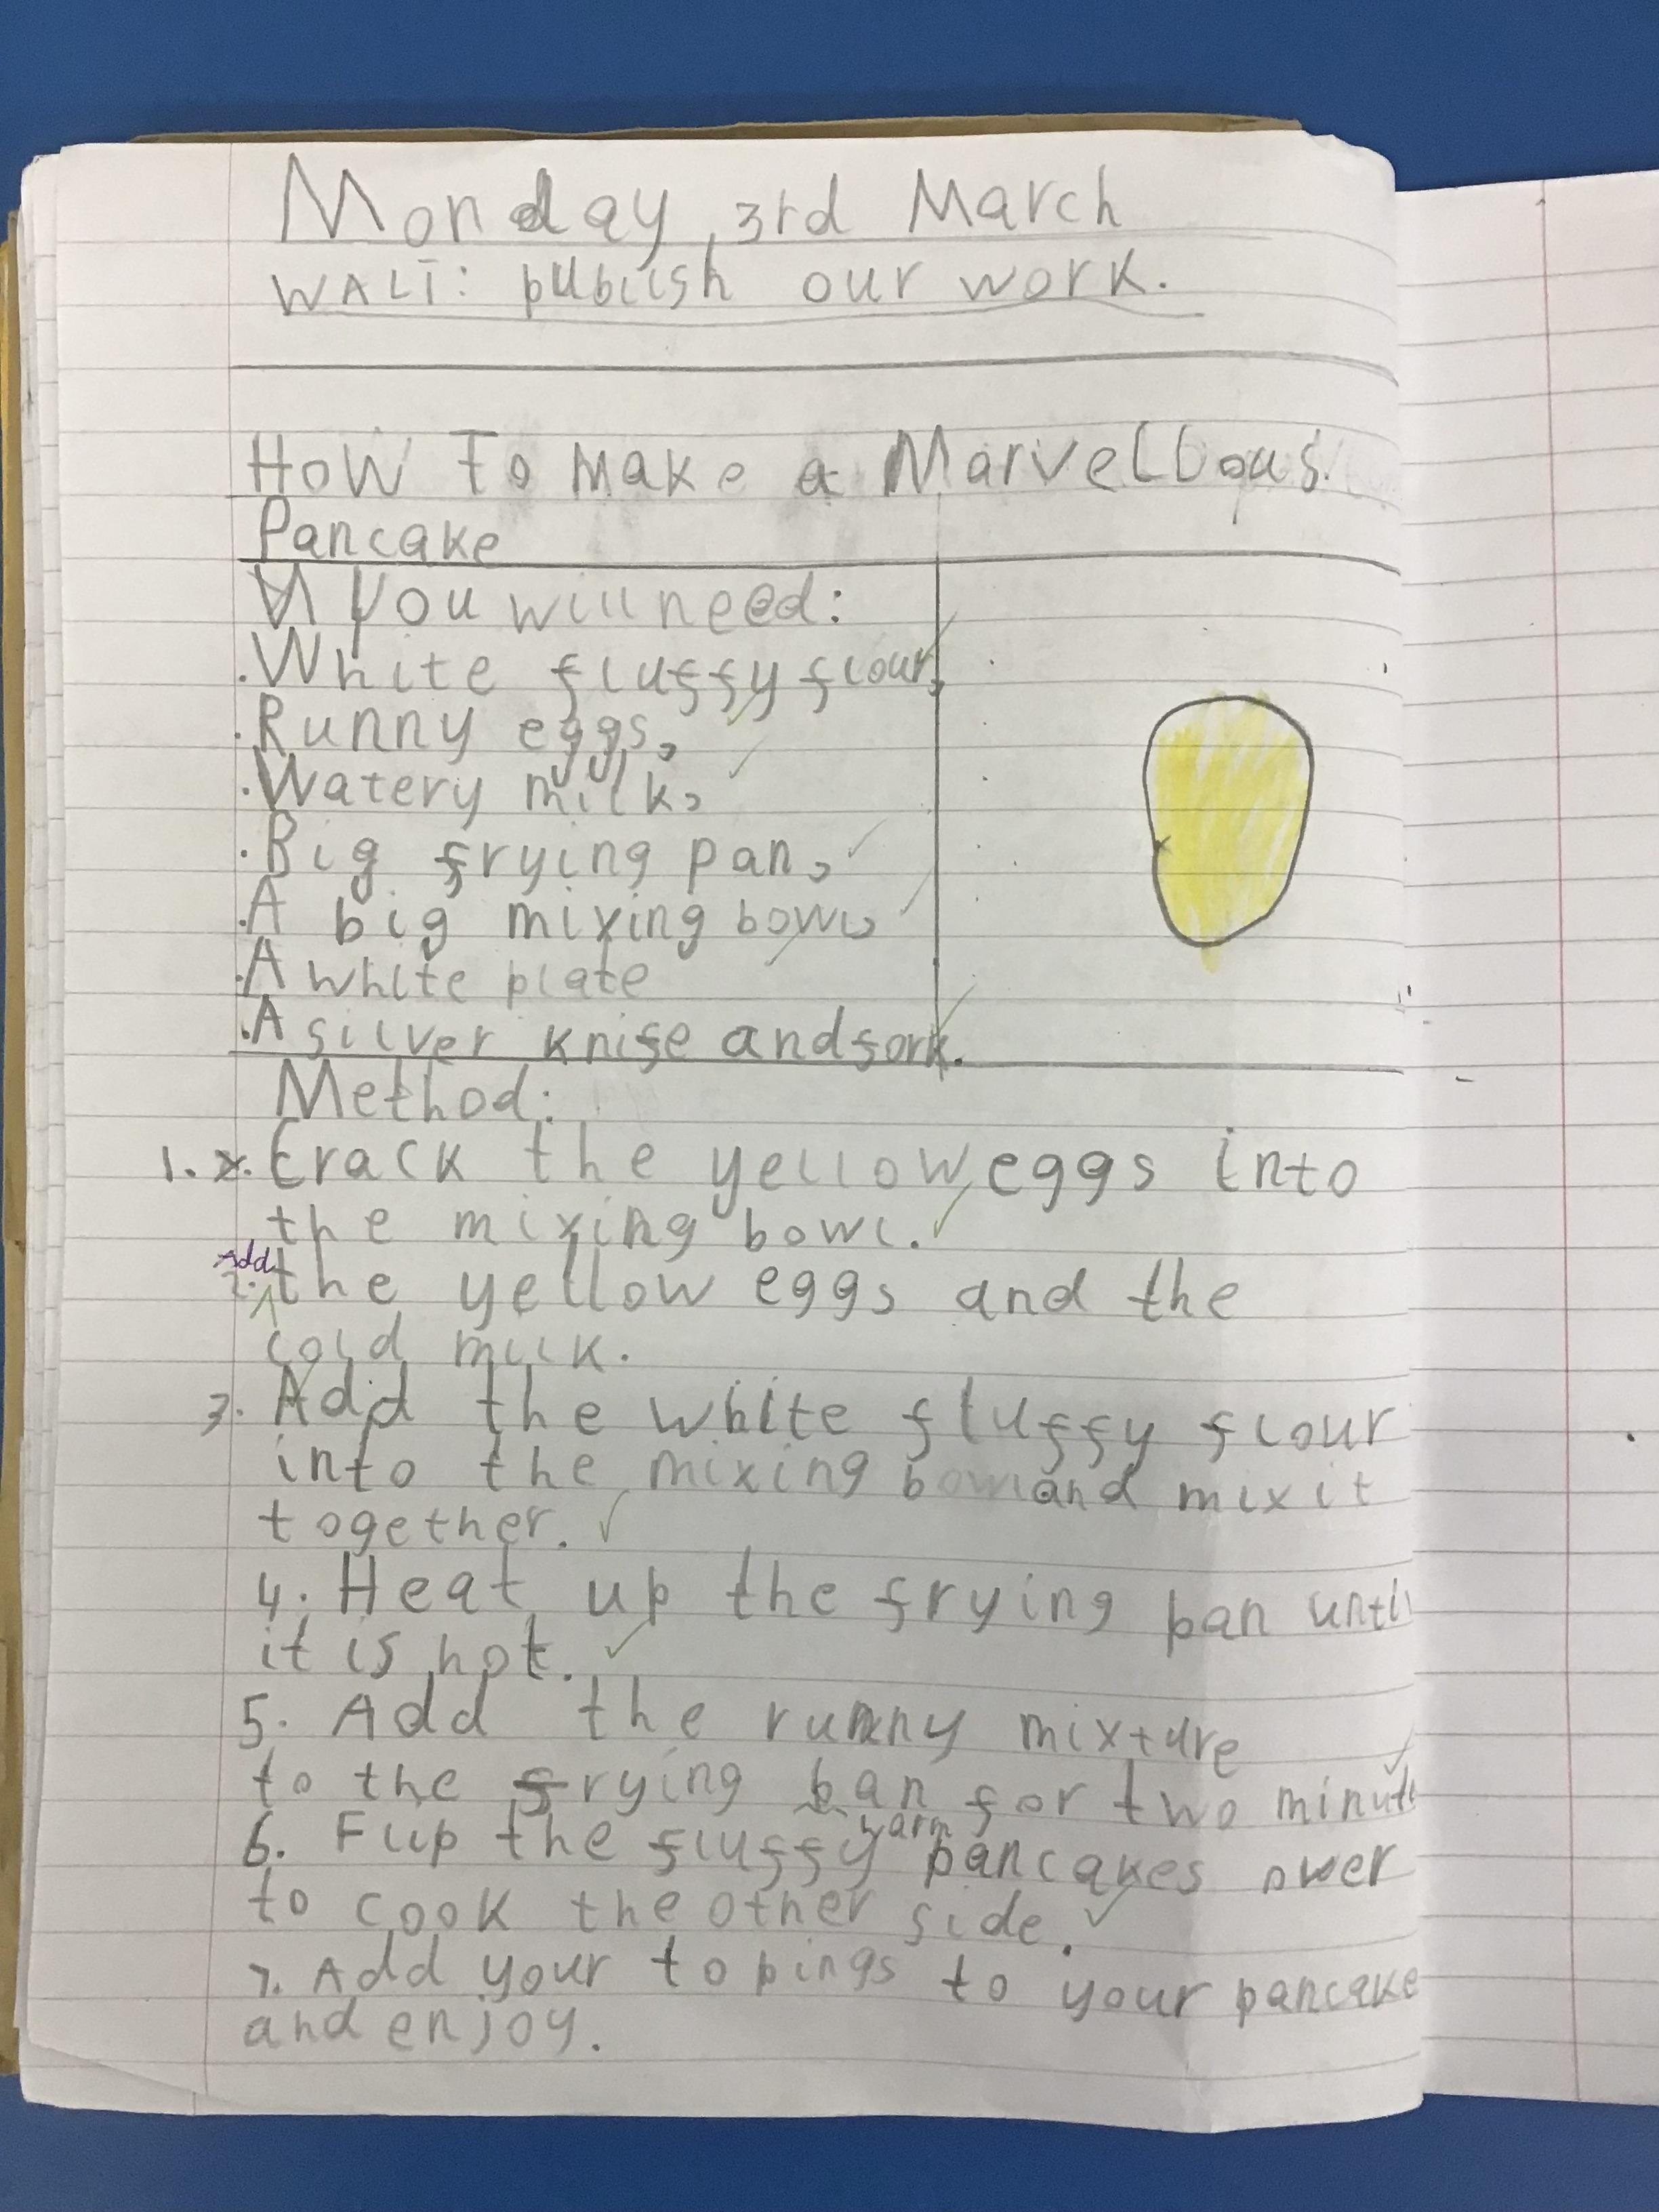 Monday, 3rd March
WALI: publish our work.
How To Make a Marvellous
Pancake
You will need:
. White fluffy flour,
. Runny eggs,
. Watery milk,
. Big frying pan,
. A big mixing bowl,
. A white plate
. A silver knife and fork.
Method:
1. Crack the yellow eggs into
the mixing bowl.
Add
2. the yellow eggs and the
cold milk.
3. Add the white fluffy flour
into the mixing bowl and mix it
together.
4. Heat up the frying pan until
it is hot.
5. Add the runny mixture
to the frying pan for two minute
warm
6. Flip the fluffy pancakes over
to cook the other side.
7. Add your topings to your pancake
and enjoy.